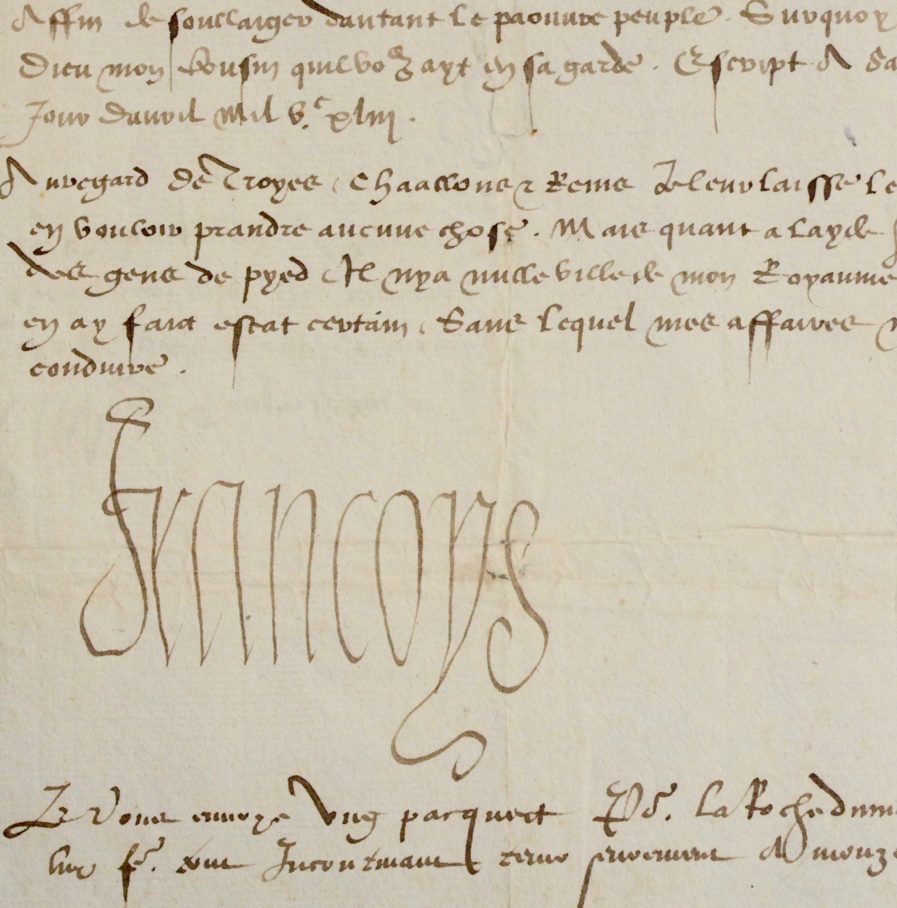 Affin de soullaiger dautant le paouvre peuple. Surquoy
Dieu mon Cousin quil voz ayt en sa garde. Escript A
Jour davril Mil Vc xliiij.
Au regard de Troyes, Chaallons & Reims Je leur laisse
en vouloir prandre aucune chose. Mais quant a layde
des gens de pyed, Il nya nulle ville de mon Royaume
en ay faict estat certain, Sans lequel mes affaires
conduire.
Francoys
Je Vous envoye ung pacquect Pr. la Roche
luy fe. Incontinant tenir seurement A